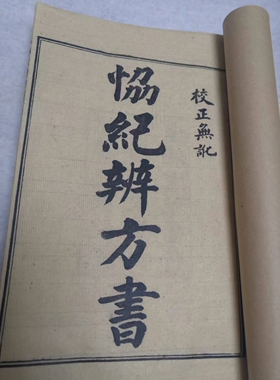 校正無訛
恊紀辨方書